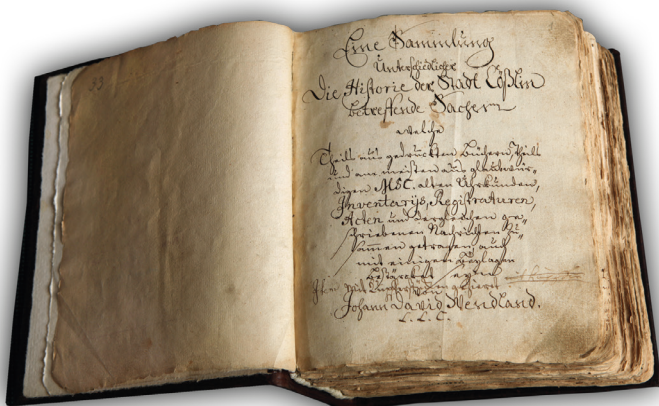 Eine Sammlung
Unterschiedlicher
Die Historie der Stadt Cößlin
betreffende Sachen
welche
Theils aus gedruckten Büchern, theils
und am meisten aus glaubwür-
digen MSC. alten Uhrkunden,
Inventarijs, Registraturen,
Acten und dergleichen ge-
schriebenen Nachrichten zu-
sammen getragen auch
mit einigen Beylagen
bestärcket
von
Johann David Wendland.